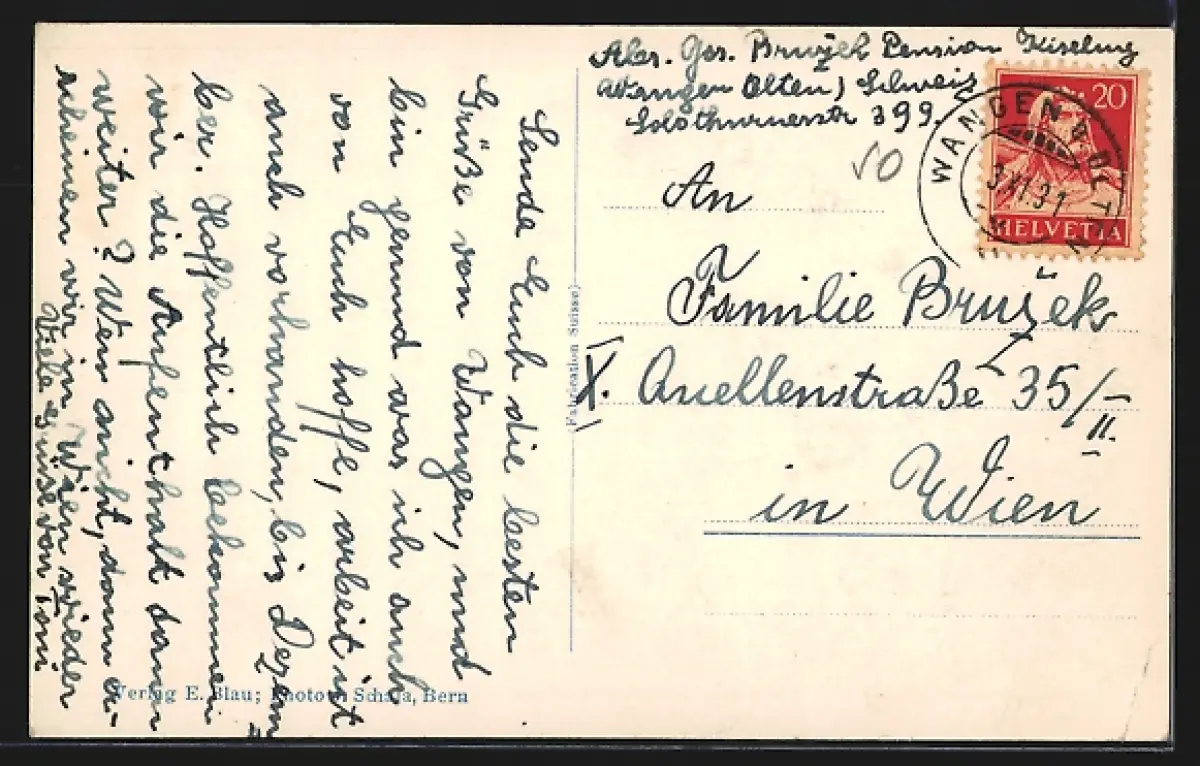 Abs. Jos. Bružek Pension Kiseling
Wangen (Olten) Schweiz
Solothurnerstr 399.
50
WANGEN b. OLTEN
3.XI.31
20
HELVETIA
An
Familie Bružek
X. Quellenstraße 35/II.
in Wien
(Fabrication Suisse)
Sende Euch die besten
Grüße von Wangen, und
bin gesund was ich auch
von Euch hoffe, arbeit ist
auch vorhanden, bis Dezem=
ber. Hoffentlich bekommen
wir die Aufenthalt dann
weiter? Wen nicht, dann er-
scheinen wir in Wien wieder
Viele Grüsse von Toni
Verlag E. Blau; Photo
Bern